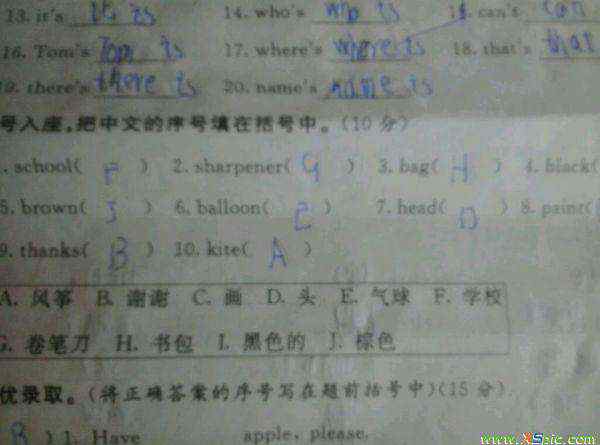 13. it's it is 14. who's who is 15. can't can
16. Tom's Tom is 17. where's where is 18. that's that
19. there's there is 20. name's name is
号入座,把中文的序号填在括号中。(10分)
1. school( F ) 2. sharpener( G ) 3. bag( H ) 4. black(
5. brown( J ) 6. balloon( E ) 7. head( D ) 8. paint(
9. thanks( B ) 10. kite( A )
A. 风筝 B. 谢谢 C. 画 D. 头 E. 气球 F. 学校
G. 卷笔刀 H. 书包 I. 黑色的 J. 棕色
优录取。(将正确答案的序号写在题前括号中)(15分)
B ) 1. Have apple, please.
www.XSpic.com